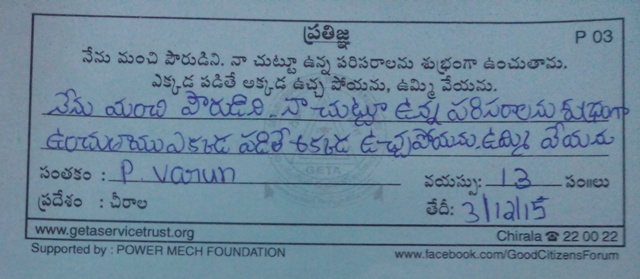 ప్రతిజ్ఞ P 03
నేను మంచి పౌరుడిని. నా చుట్టూ ఉన్న పరిసరాలను శుభ్రంగా ఉంచుతాను.
ఎక్కడ పడితే అక్కడ ఉచ్చ పోయను, ఉమ్మి వేయను.
నేను మంచి పౌరుడిని. నా చుట్టూ ఉన్న పరిసరాలను శుభ్రంగా
ఉంచుతాను ఎక్కడ పడితే అక్కడ ఉచ్చపోయను, ఉమ్మి వేయను
సంతకం : P. Varun వయస్సు: 13 సం॥లు
ప్రదేశం : చీరాల తేదీ: 3/12/15
www.getaservicetrust.org Chirala ☎ 22 00 22
Supported by : POWER MECH FOUNDATION www.facebook.com/GoodCitizensForum
GETA